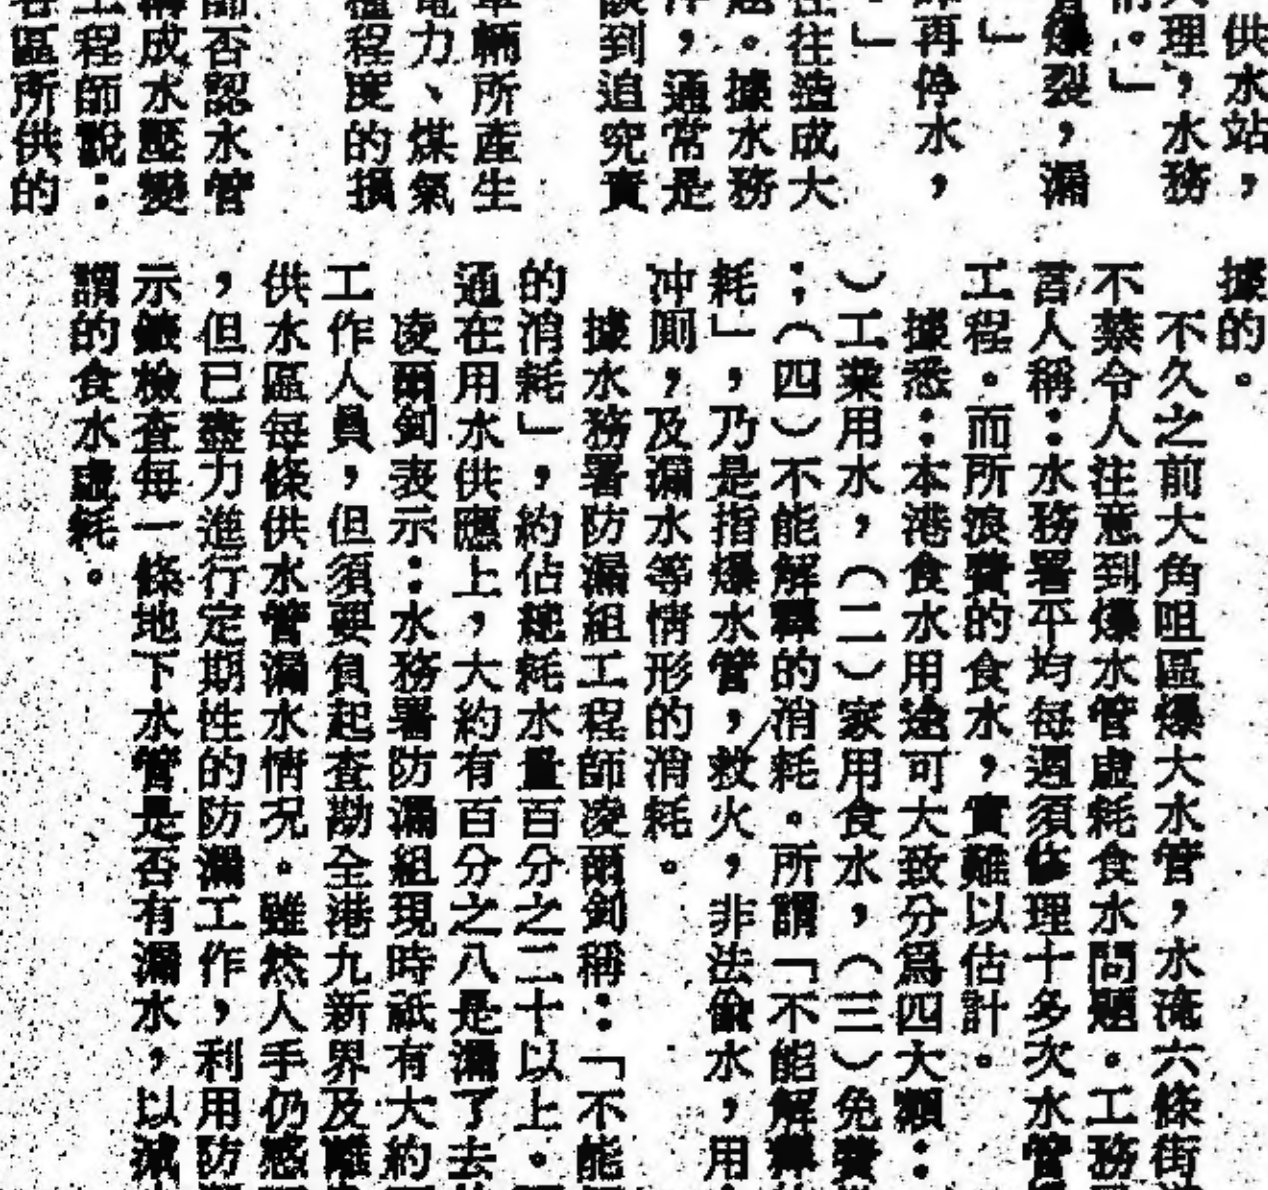 供水站，
理，水務
。」
爆裂，漏
」
再停水，
」
往往造成大
。據水務
，通常是
談到追究責
車輛所產生
電力、煤氣
程度的損
師否認水管
構成水壓變
工程師說：
各區所供的
據的。
不久之前大角咀區爆大水管，水淹六條街
不禁令人注意到爆水管虛耗食水問題。工務
言人稱：水務署平均每週須修理十多次水管
工程。而所浪費的食水，實難以估計。
據悉：本港食水用途可大致分爲四大類：
）工業用水，（二）家用食水，（三）免費
；（四）不能解釋的消耗。所謂「不能解釋
耗」，乃是指爆水管，救火，非法偷水，用
冲厠，及漏水等情形的消耗。
據水務署防漏組工程師凌爾釗稱：「不能
的消耗」，約佔總耗水量百分之二十以上。
通在用水供應上，大約有百分之八是漏了去
凌爾釗表示：水務署防漏組現時祇有大約
工作人員，但須要負起查勘全港九新界及離
供水區每條供水管漏水情况。雖然人手仍感
，但已盡力進行定期性的防漏工作，利用防
示儀檢查每一條地下水管是否有漏水，以減
謂的食水虛耗。